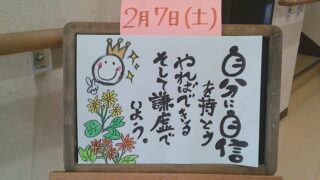 2月7日(土)
自分に自信
を持とう
やればできる
そして謙虚で
いよう。